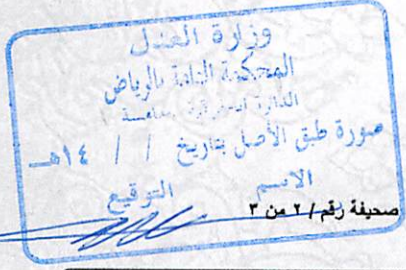 وزارة العدل
المحكمة العامة بالرياض
الدائرة
صورة طبق الأصل بتاريخ / / ١٤هـ
الاسم
التوقيع
صحيفة رقم / ٢ من ٣